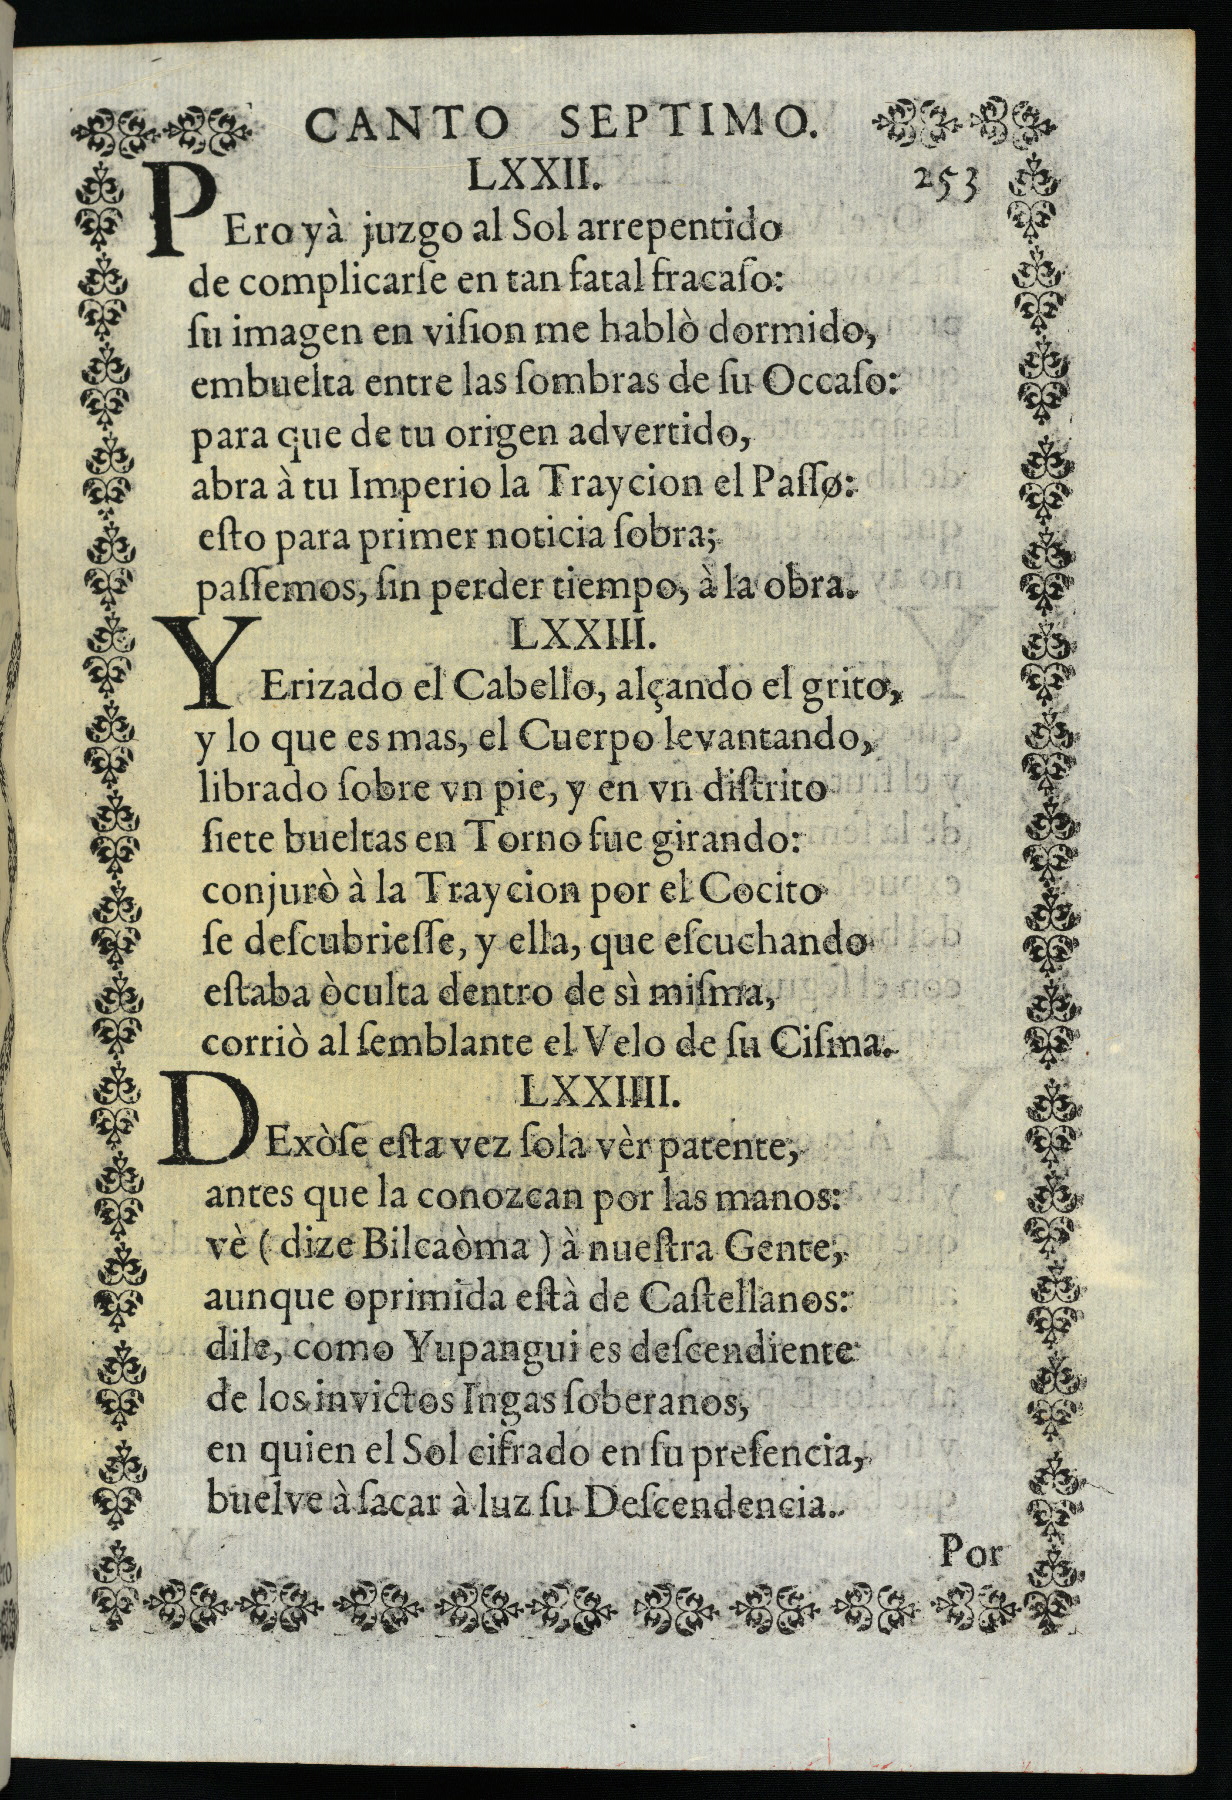 CANTO SEPTIMO.
LXXII. 253
PEro yà juzgo al Sol arrepentido
de complicarſe en tan fatal fracaſo:
ſu imagen en viſion me hablò dormido,
embuelta entre las ſombras de ſu Occaſo:
para que de tu origen advertido,
abra à tu Imperio la Traycion el Paſſo:
eſto para primer noticia ſobra;
paſſemos, ſin perder tiempo, à la obra.
LXXIII.
Y Erizado el Cabello, alçando el grito,
y lo que es mas, el Cuerpo levantando,
librado ſobre vn pie, y en vn diſtrito
ſiete bueltas en Torno fue girando:
conjurò à la Traycion por el Cocito
ſe deſcubrieſſe, y ella, que eſcuchando
eſtaba òculta dentro de sì miſma,
corriò al ſemblante el Velo de ſu Ciſma.
LXXIIII.
DExòſe eſta vez ſola vèr patente,
antes que la conozcan por las manos:
vè ( dize Bilcaòma ) à nueſtra Gente,
aunque oprimida eſtà de Caſtellanos:
dile, como Yupangui es deſcendiente
de los invictos Ingas ſoberanos,
en quien el Sol cifrado en ſu preſencia,
buelve à ſacar à luz ſu Deſcendencia.
Por